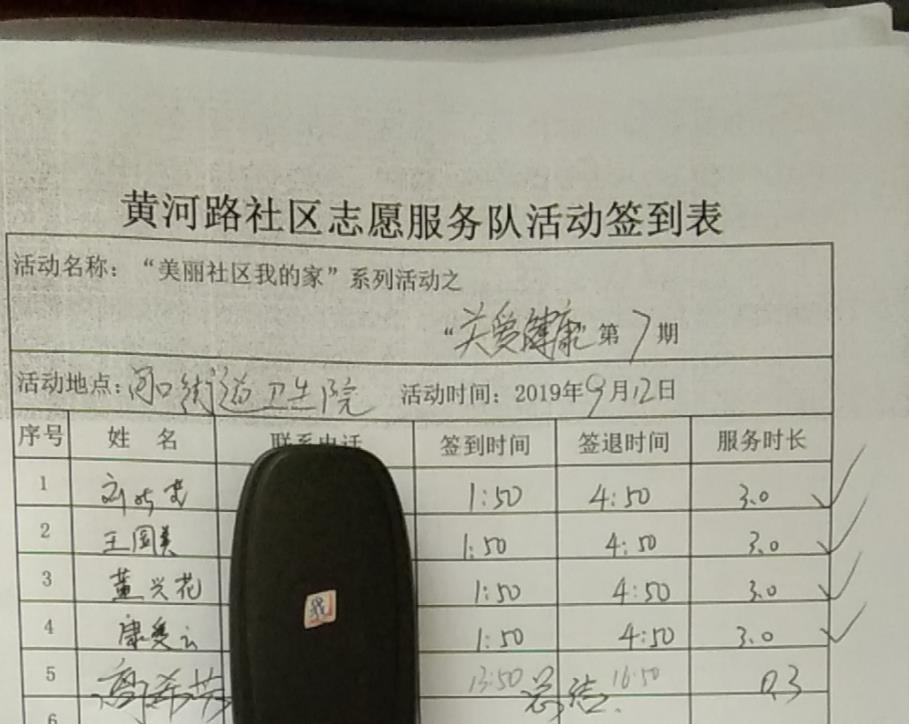 黄河路社区志愿服务队活动签到表
活动名称：“美丽社区我的家”系列活动之
“关爱健康”第7期
活动地点：河口街道卫生院 活动时间：2019年9月12日
序号 姓 名 联系电话 签到时间 签退时间 服务时长
1 刘 1:50 4:50 3.0
2 王国美 1:50 4:50 3.0
3 董兴花 1:50 4:50 3.0
4 康爱云 1:50 4:50 3.0
5 13:50 总结. 16:50 0.3
6